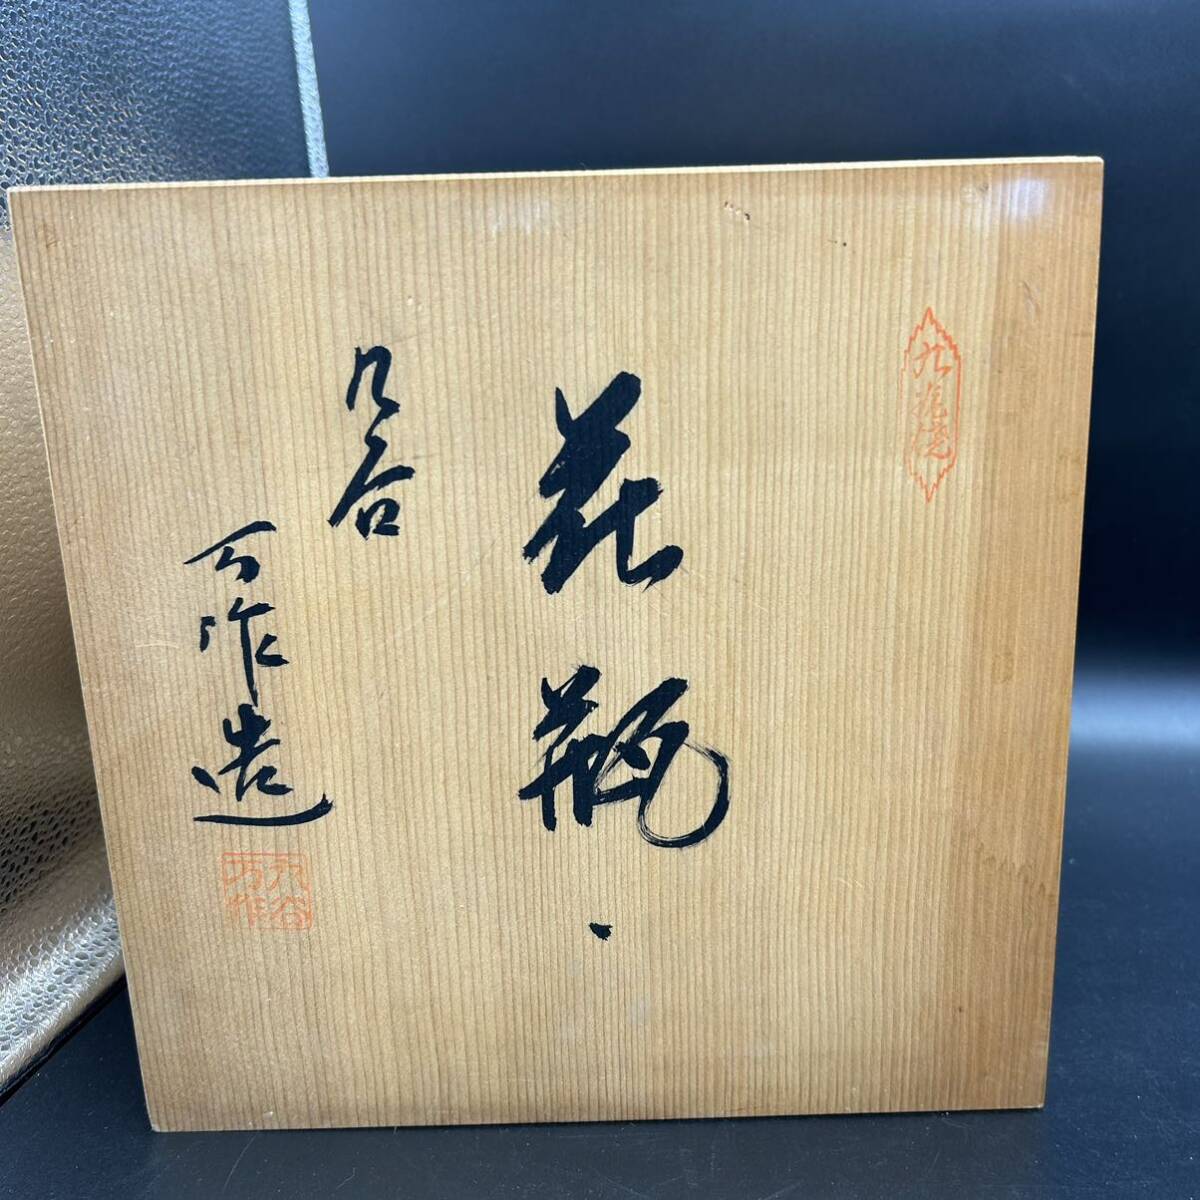 九谷焼
花瓶
九谷
万作造
九谷
万作